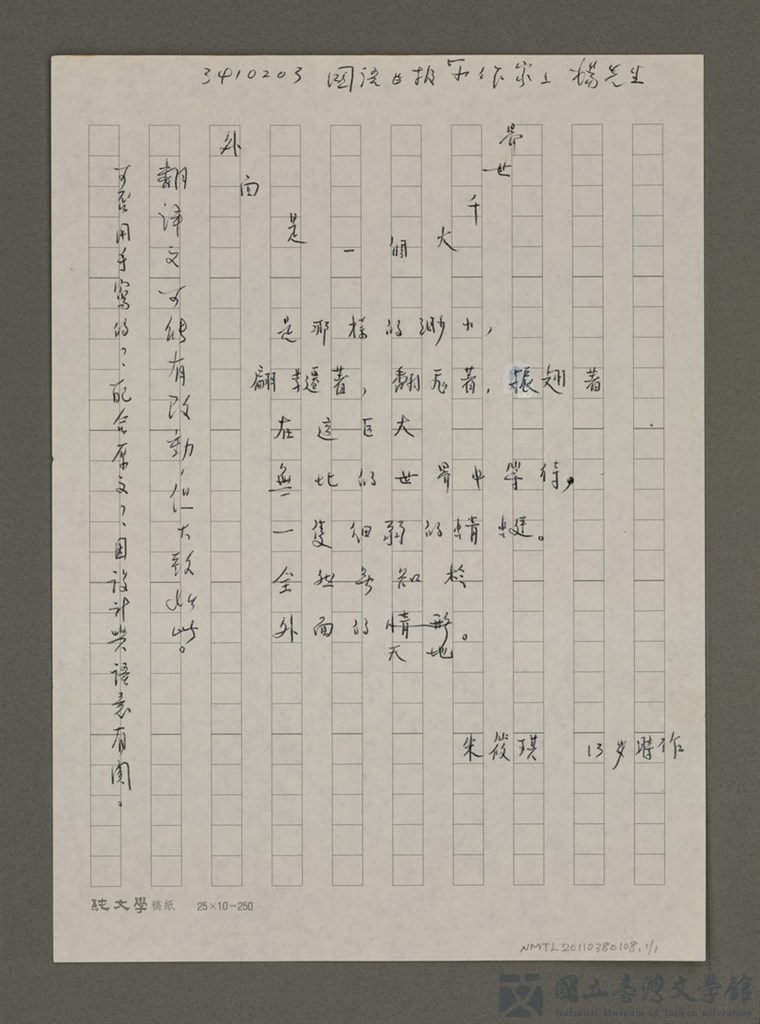 3410203 國語日報 写作家上 楊先生
外面是一個大千世界
是那樣的渺小,
翩韆著, 翻飛著, 振翅著
在這巨大
無比的世界中等待,
一隻細弱的蜻蜓。
全然無知於
外面的情形。
天地
朱筱琪 13岁時作
翻譯文可能有改動,但大致如此。
可否用手寫的?配合原文?因設計與語意有関。
純文學稿紙 25×10=250
NMTL20110380108.1/1
國立臺灣文學館
National Museum of Taiwan Literature